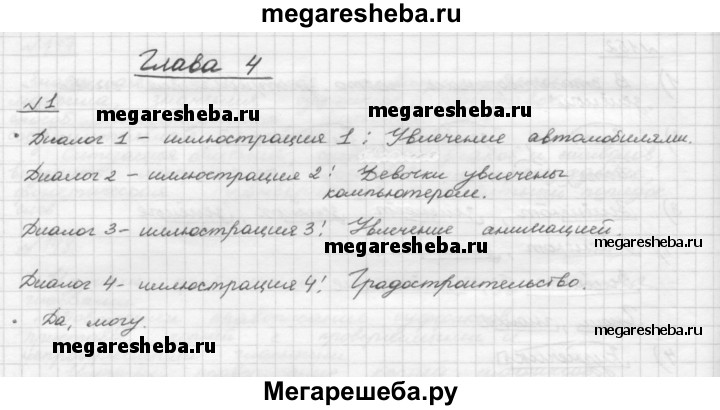 megaresheba.ru
Глава 4
№1
megaresheba.ru megaresheba.ru
• Диалог 1 – иллюстрация 1: Увлечение автомобилями.
Диалог 2 – иллюстрация 2: Девочки увлечены
компьютером.
Диалог 3 – иллюстрация 3: Увлечение анимацией.
megaresheba.ru megaresheba.ru
Диалог 4 – иллюстрация 4: Градостроительство.
• Да, могу.
megaresheba.ru megaresheba.ru
Мегарешеба.ру